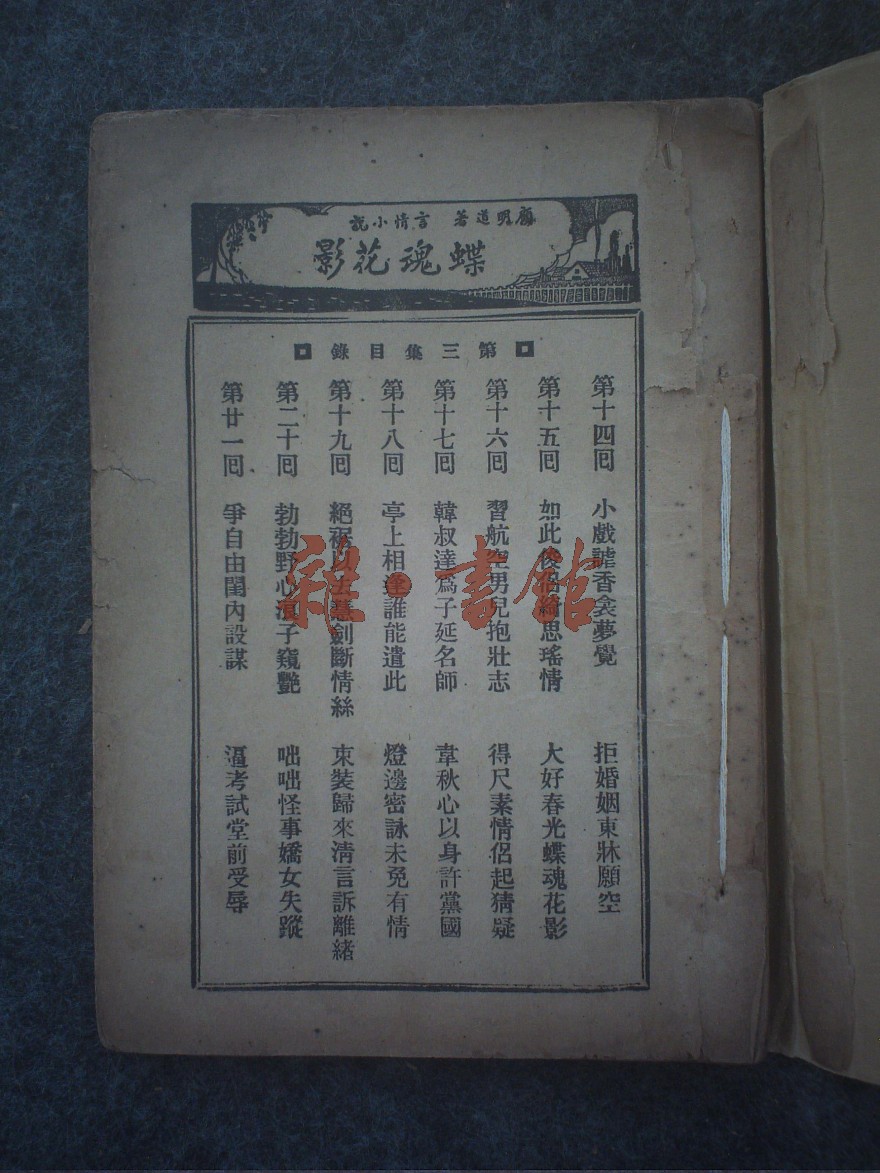 顧明道著 言情小說
蝶魂花影
第三集目錄
第十四囘 小戲謔香衾夢覺 拒婚姻東牀願空
第十五囘 如此後侶綺思瑤情 大好春光蝶魂花影
第十六囘 習航空男兒抱壯志 得尺素情侶起猜疑
第十七囘 韓叔達爲子延名師 韋秋心以身許黨國
第十八囘 亭上相逢誰能遣此 燈邊密詠未免有情
第十九囘 絕裾以去慧劍斷情絲 束裝歸來淸言訴離緖
第二十囘 勃勃野心浪子窺艷 咄咄怪事嬌女失蹤
第廿一囘 爭自由閨內設謀 逼考試堂前受辱
雜·書館